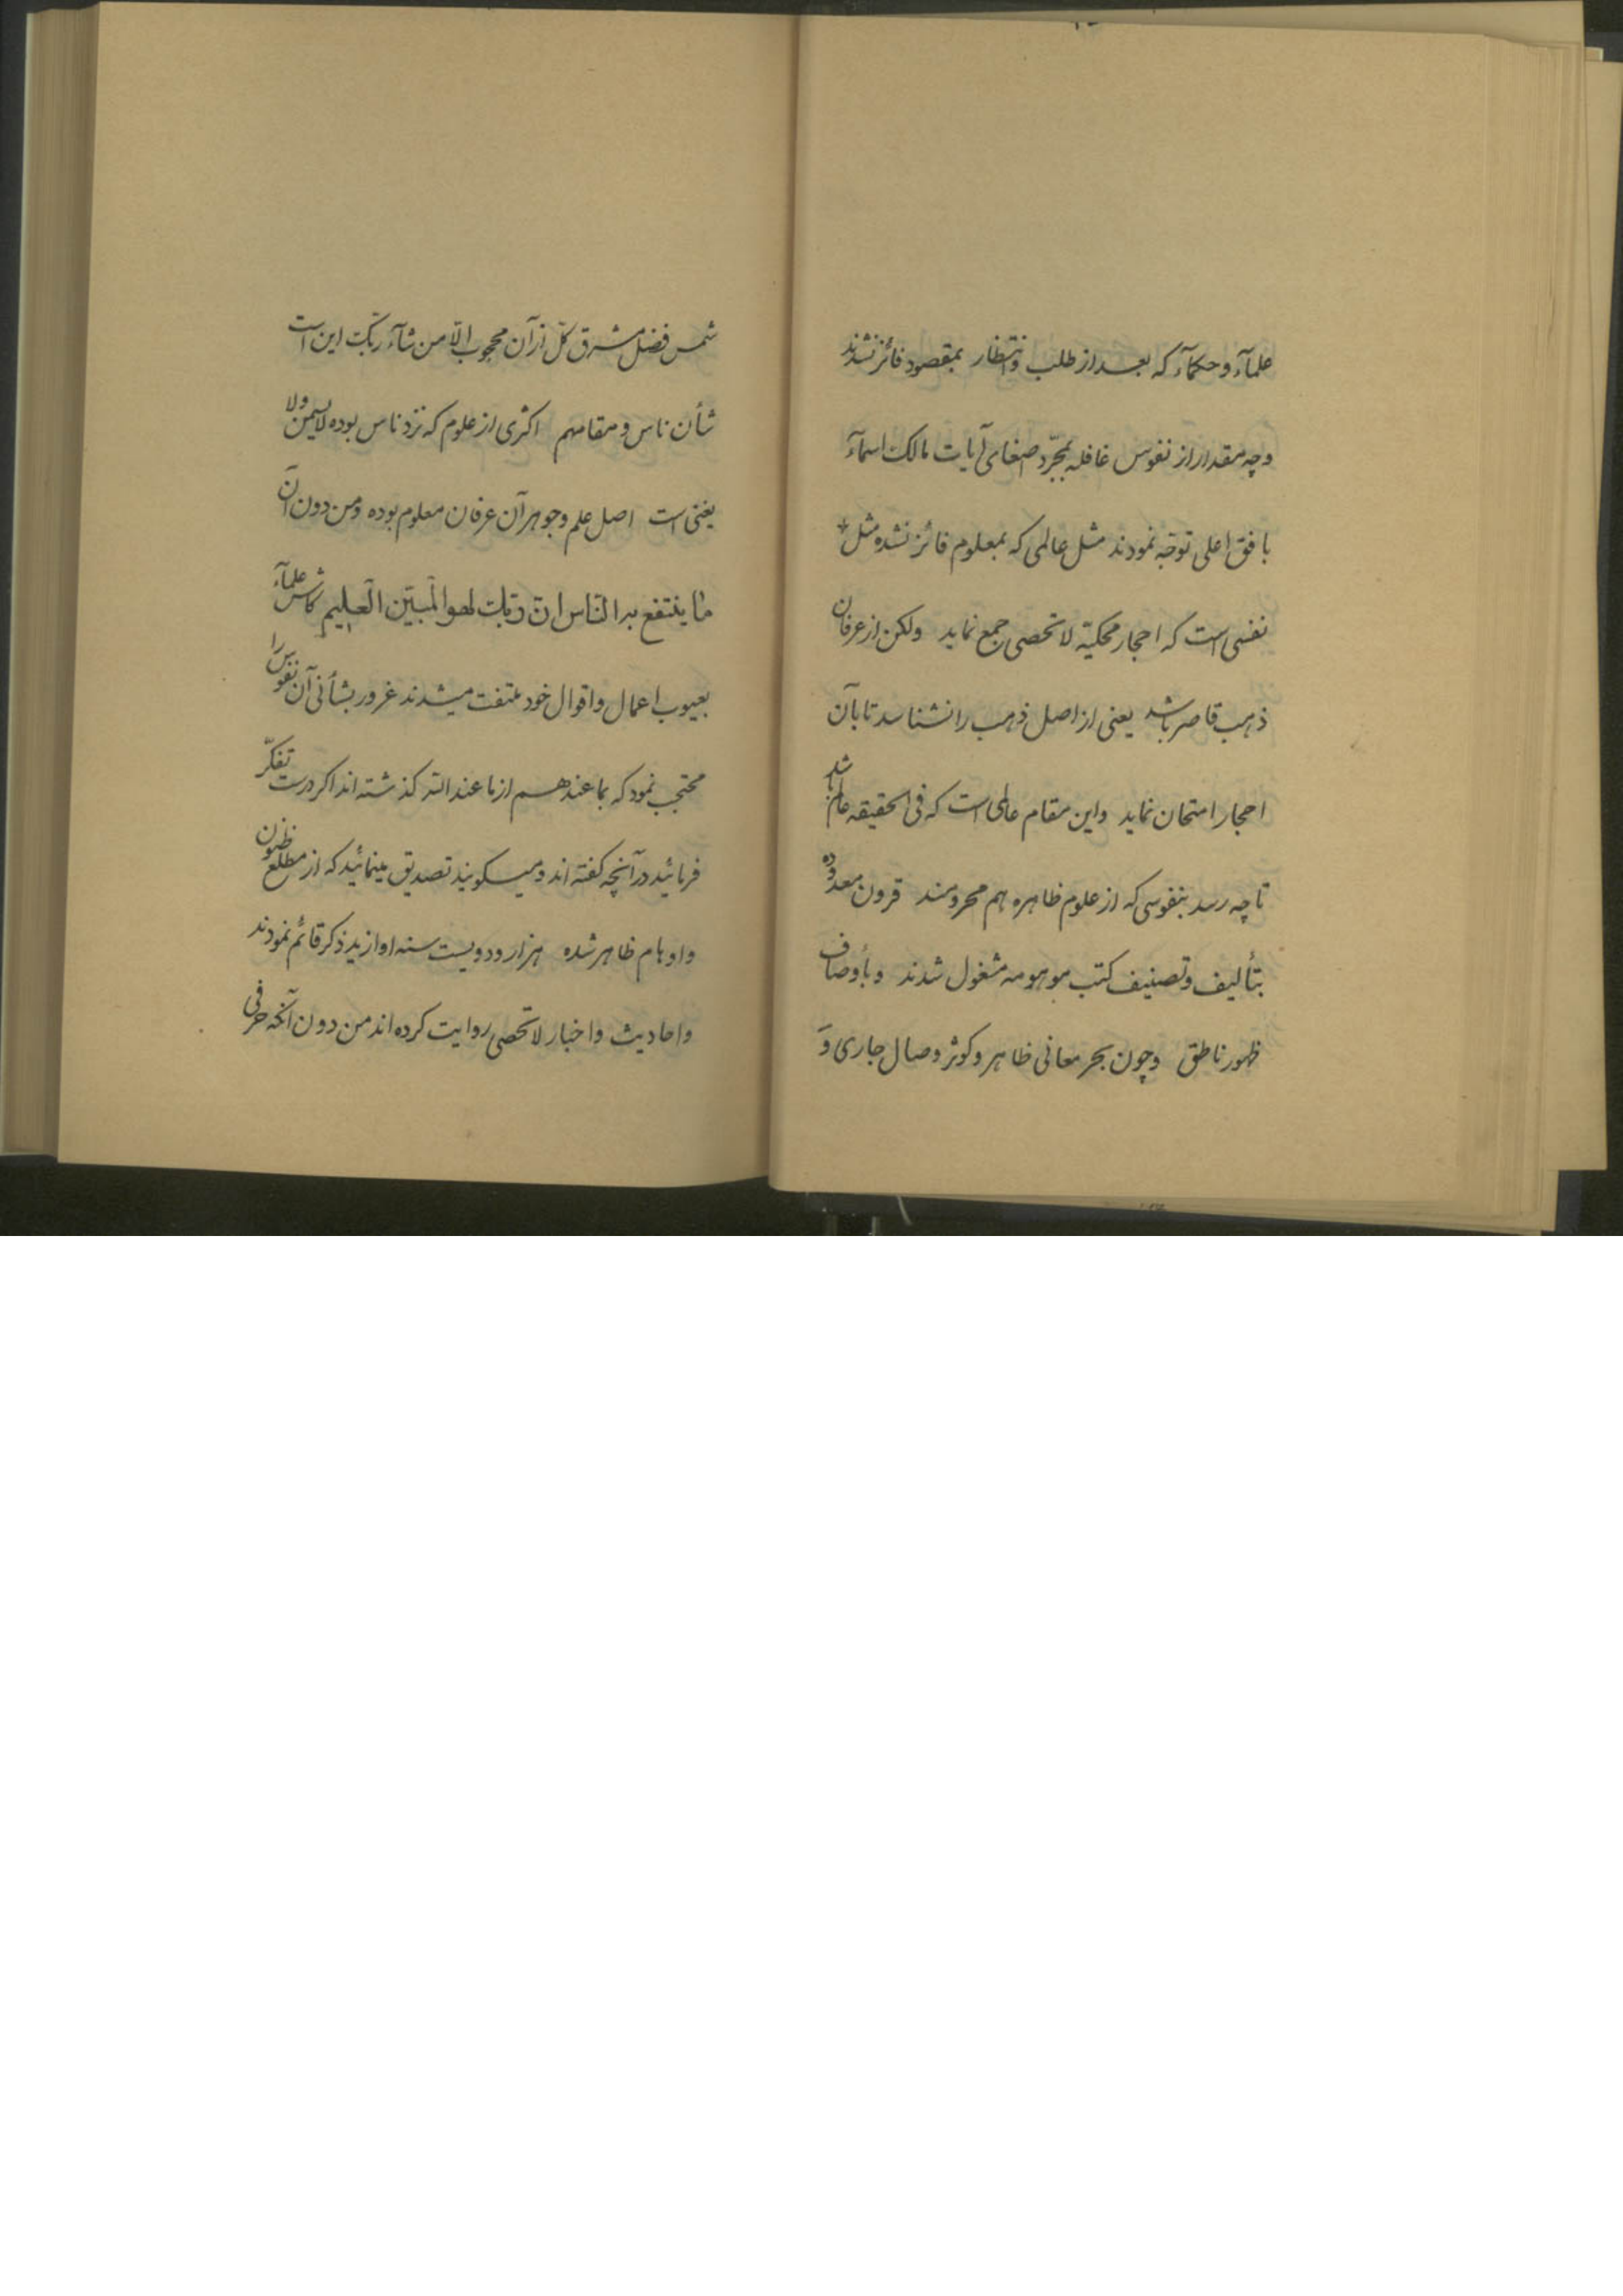 علمآء و حکمآء که بعد از طلب و انتظار بمقصود فائز نشدند
و چه مقدار از نفوس غافله بمجرّد اصغای آیات مالک اسمآء
بافق اعلی توجّه نمودند مثل عالمی که بمعلوم فائز نشده مثل
نفسی است که احجار محکیّة لا تحصی جمع نماید ولکن از عرفان
ذهب قاصر باشد یعنی از اصل ذهب را نشناسد تا بآن
احجار امتحان نماید و این مقام عالمی است که فی الحقیقه عالم باشد
تا چه رسد بنفوسی که از علوم ظاهره هم محرومند قرون معدوده
بتألیف و تصنیف کتب موهومه مشغول شدند و بأوصاف
ظهور ناطق و چون بحر معانی ظاهر و کوثر وصال جاری و
شمس فضل مشرق کلّ از آن محجوب الّا من شآء ربّک این است
شأن ناس و مقامهم اکثری از علوم که نزد ناس بوده لا یسمن و لا
یغنی است اصل علم و جوهر آن عرفان معلوم بوده و من دون آن
ما ینتفع به النّاس انّ ربّک لهو المبیّن العلیم کاش علمآء
بعیوب اعمال و اقوال خود ملتفت میشدند غرور بشأنی آن نفوس را
محتجب نمود که بما عندهم از ما عند الله کذشته اند اکر درست تفکّر
فرمائید در آنچه کفته اند و میکویند تصدیق مینمائید که از مطلع ظنون
و اوهام ظاهر شده هزار و دویست سنه او ازید ذکر قائم نمودند
و احادیث و اخبار لا تحصی روایت کرده اند من دون آنکه حرفی